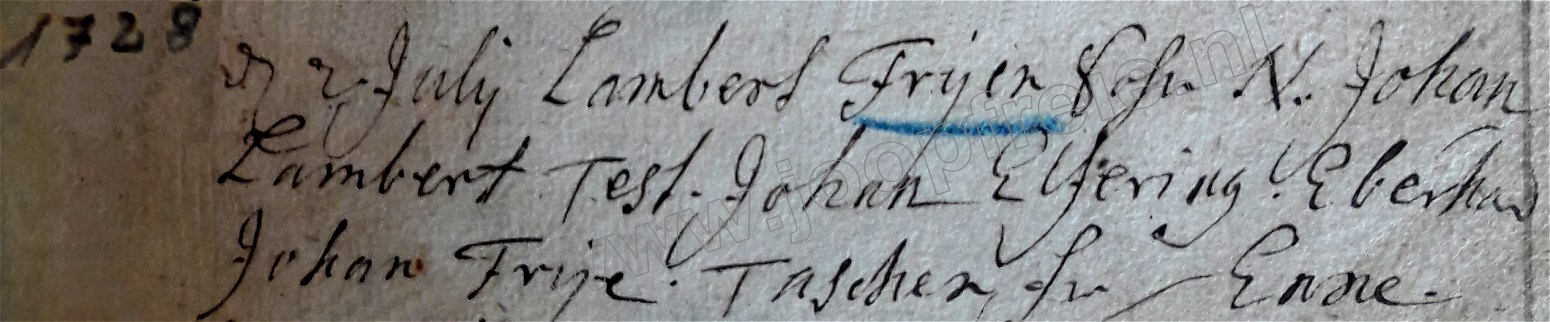 1728
2 Julij Lambert Frijen Sohn N. Johan
Lambert Test. Johan Elfering. Eberhard
Johan Frije. Taschen Enne.
www.joopfrielo.nl